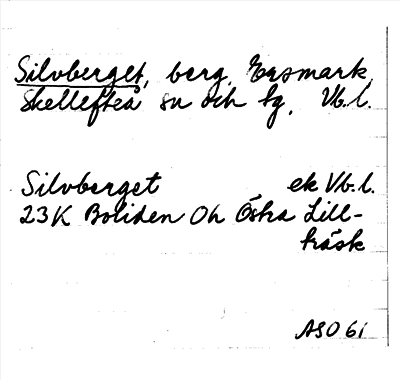 Silvberget, berg, Ersmark,
Skellefteå sn och tg, Vb.l.
Silvberget ek Vb.l.
23K Boliden 0h Östra Lill-
träsk
ASO 61